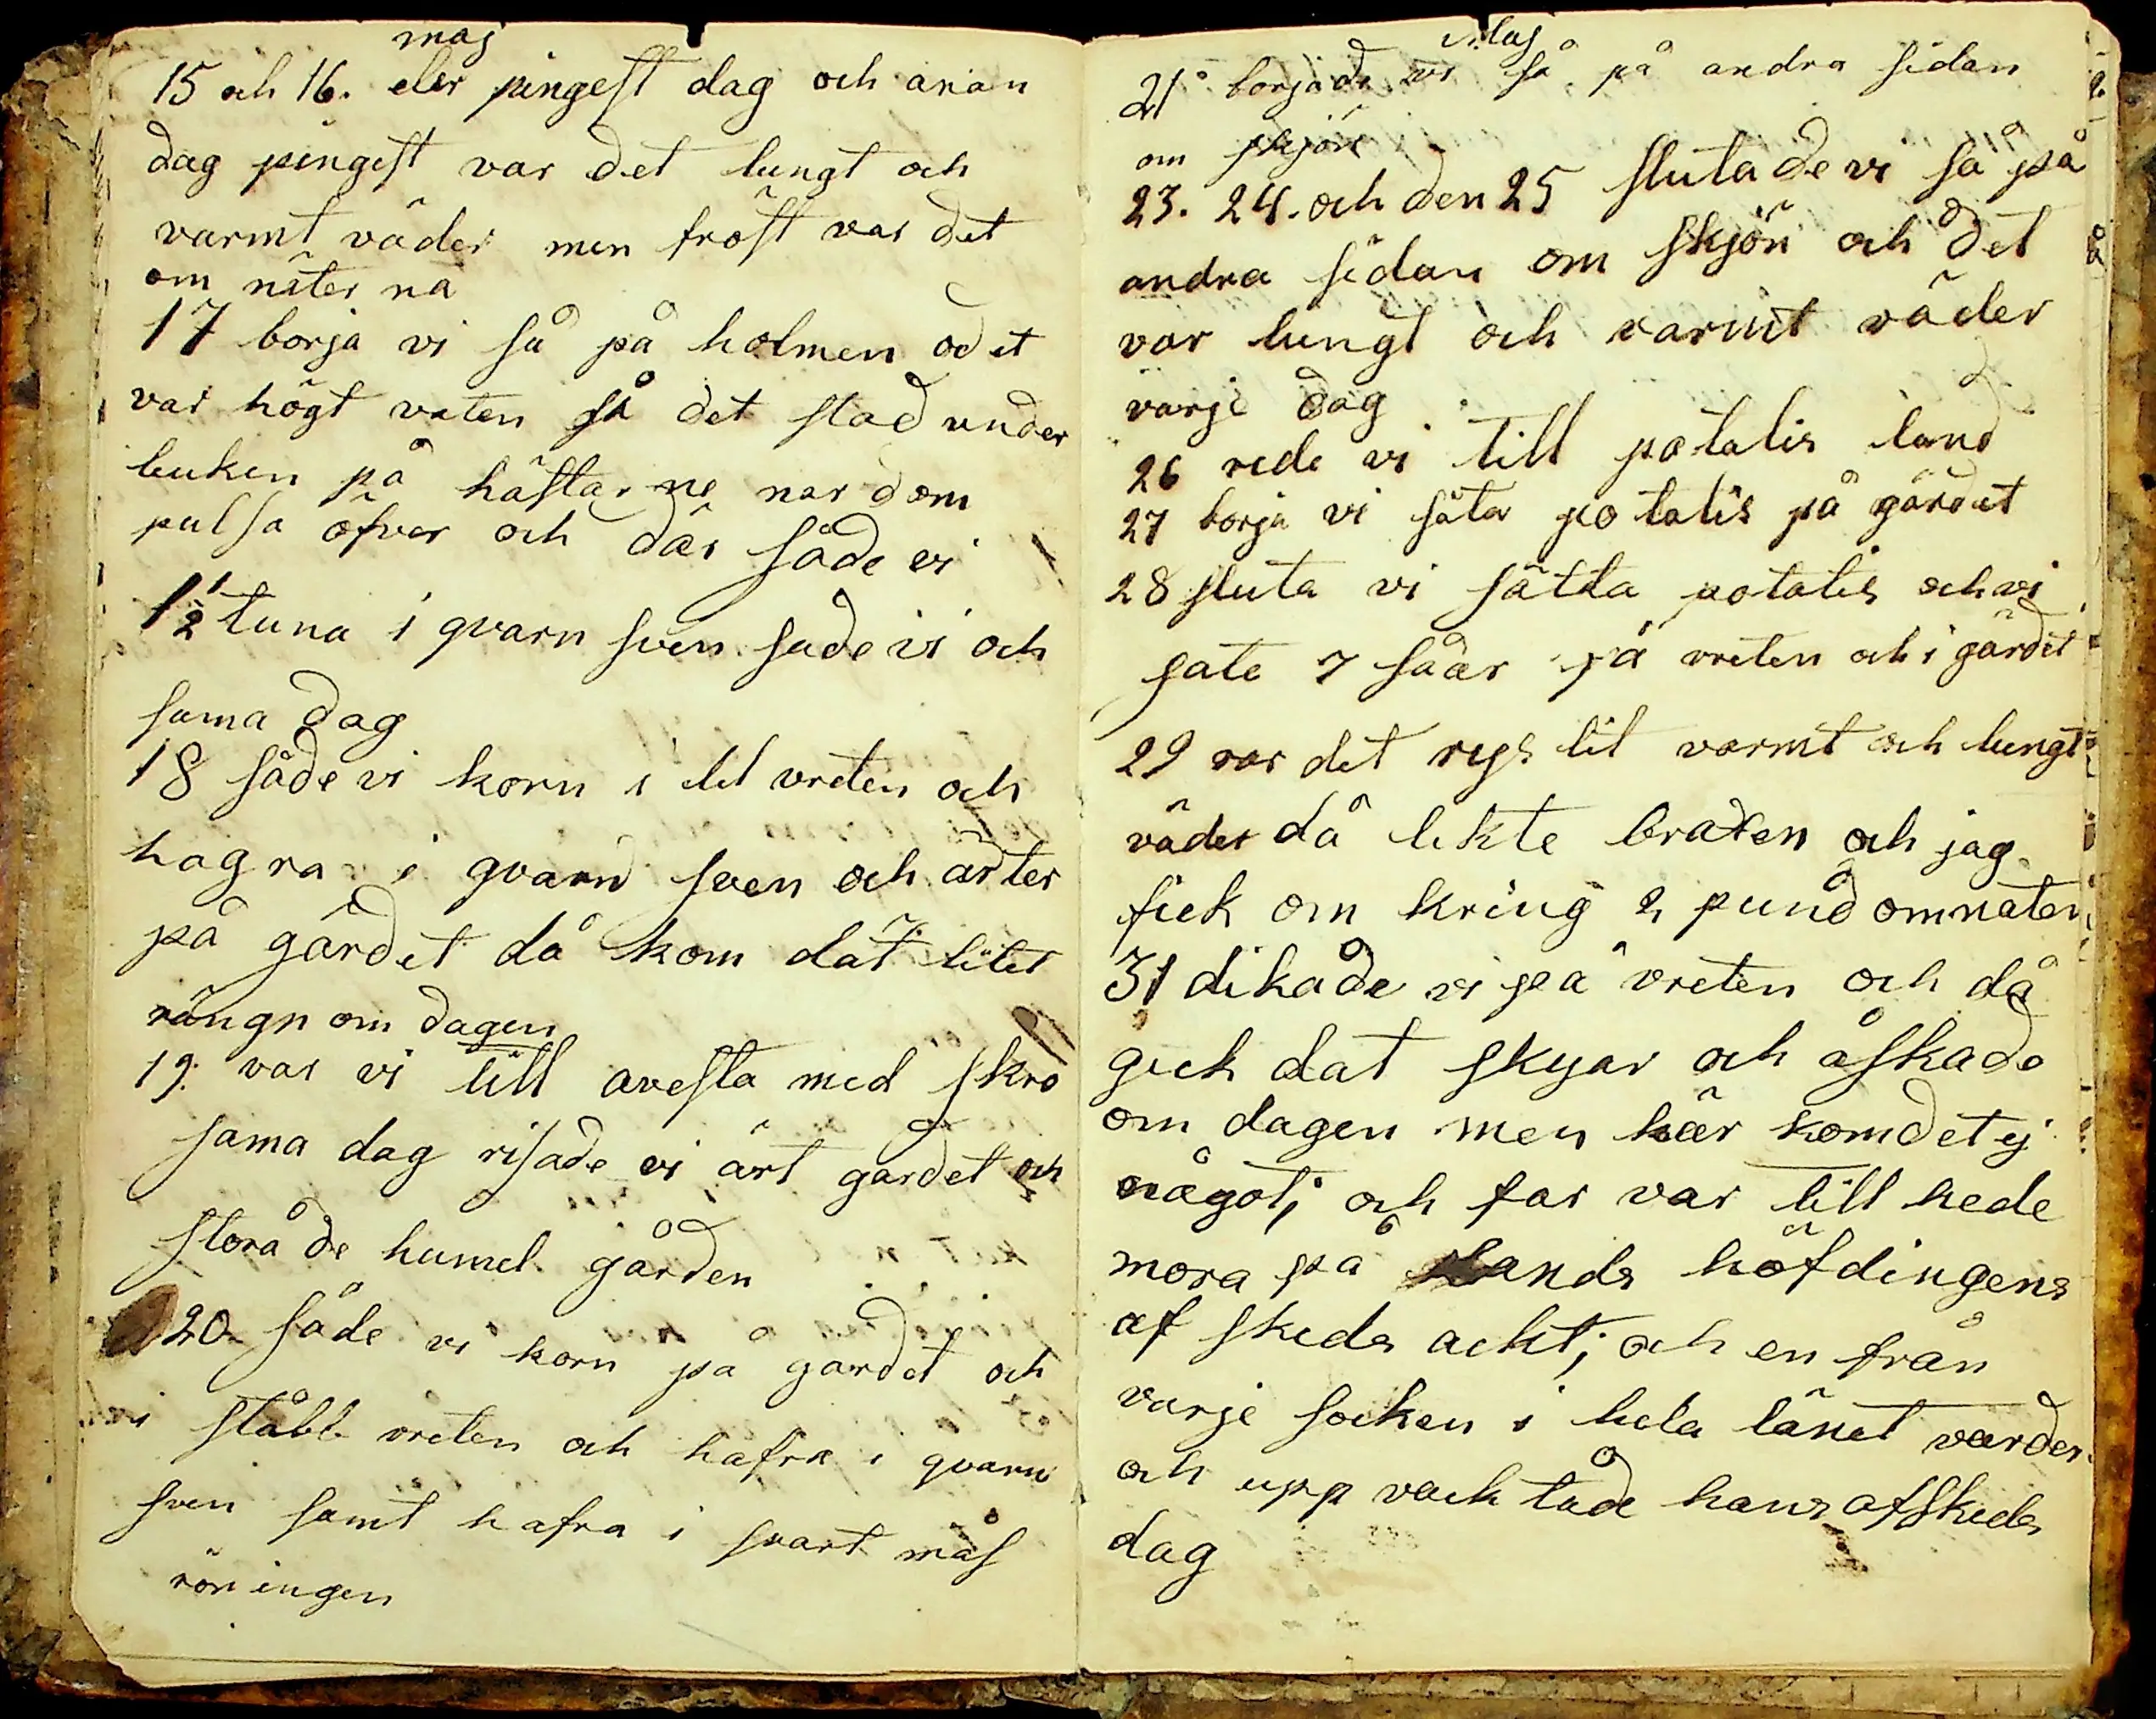 maj
15 och 16. eler pingest dag och anan
dag pingest var det lungt och
varmt väder men fröst var det
om näter na
17 borja vi så på holmen o det
var högt vaten så det stod under
buken på hästar ne nar dom
pulsa öfver och där såde vi
1 1/2 tuna i qvarn sven sade vi och
sama dag
18 såde vi korn i lit vreten och
hagra i qvarn sven och ärter
på gärdet då kom dät litet
rängn om dagen
19. var vi till avesta med skro
sama dag risade vi ärt gardet och
storade humel gården
20 såde vi korn på gardet och
i ståbb vreten och hafra i qvarn
sven samt hafra i svart mås
rön ingen
Maj
21 borjade vi så på andra sidan
om skjön
23. 24. och den 25 slutade vi så på
andra sidan om skjön och det
var lungt och varmt väder
varje dag
26 rede vi till potatis land
27 borja vi säta potatis på gärdet
28 sluta vi sätta potatis och vi
sate 7 såar på vreten och i gärdet
29 var det regs lit varmt och lungt
väder då lekte braxen och jag
fick om kring 2 pund om naten
31 dikade vi på vreten och då
gick dat skyar och åskade
om dagen men här kom det ej
något; och far var till hede
mora på lands höfdingens
af skeds ackt; och en från
varje socken i hela länet var der
och upp vack tade hans afskeds
dag